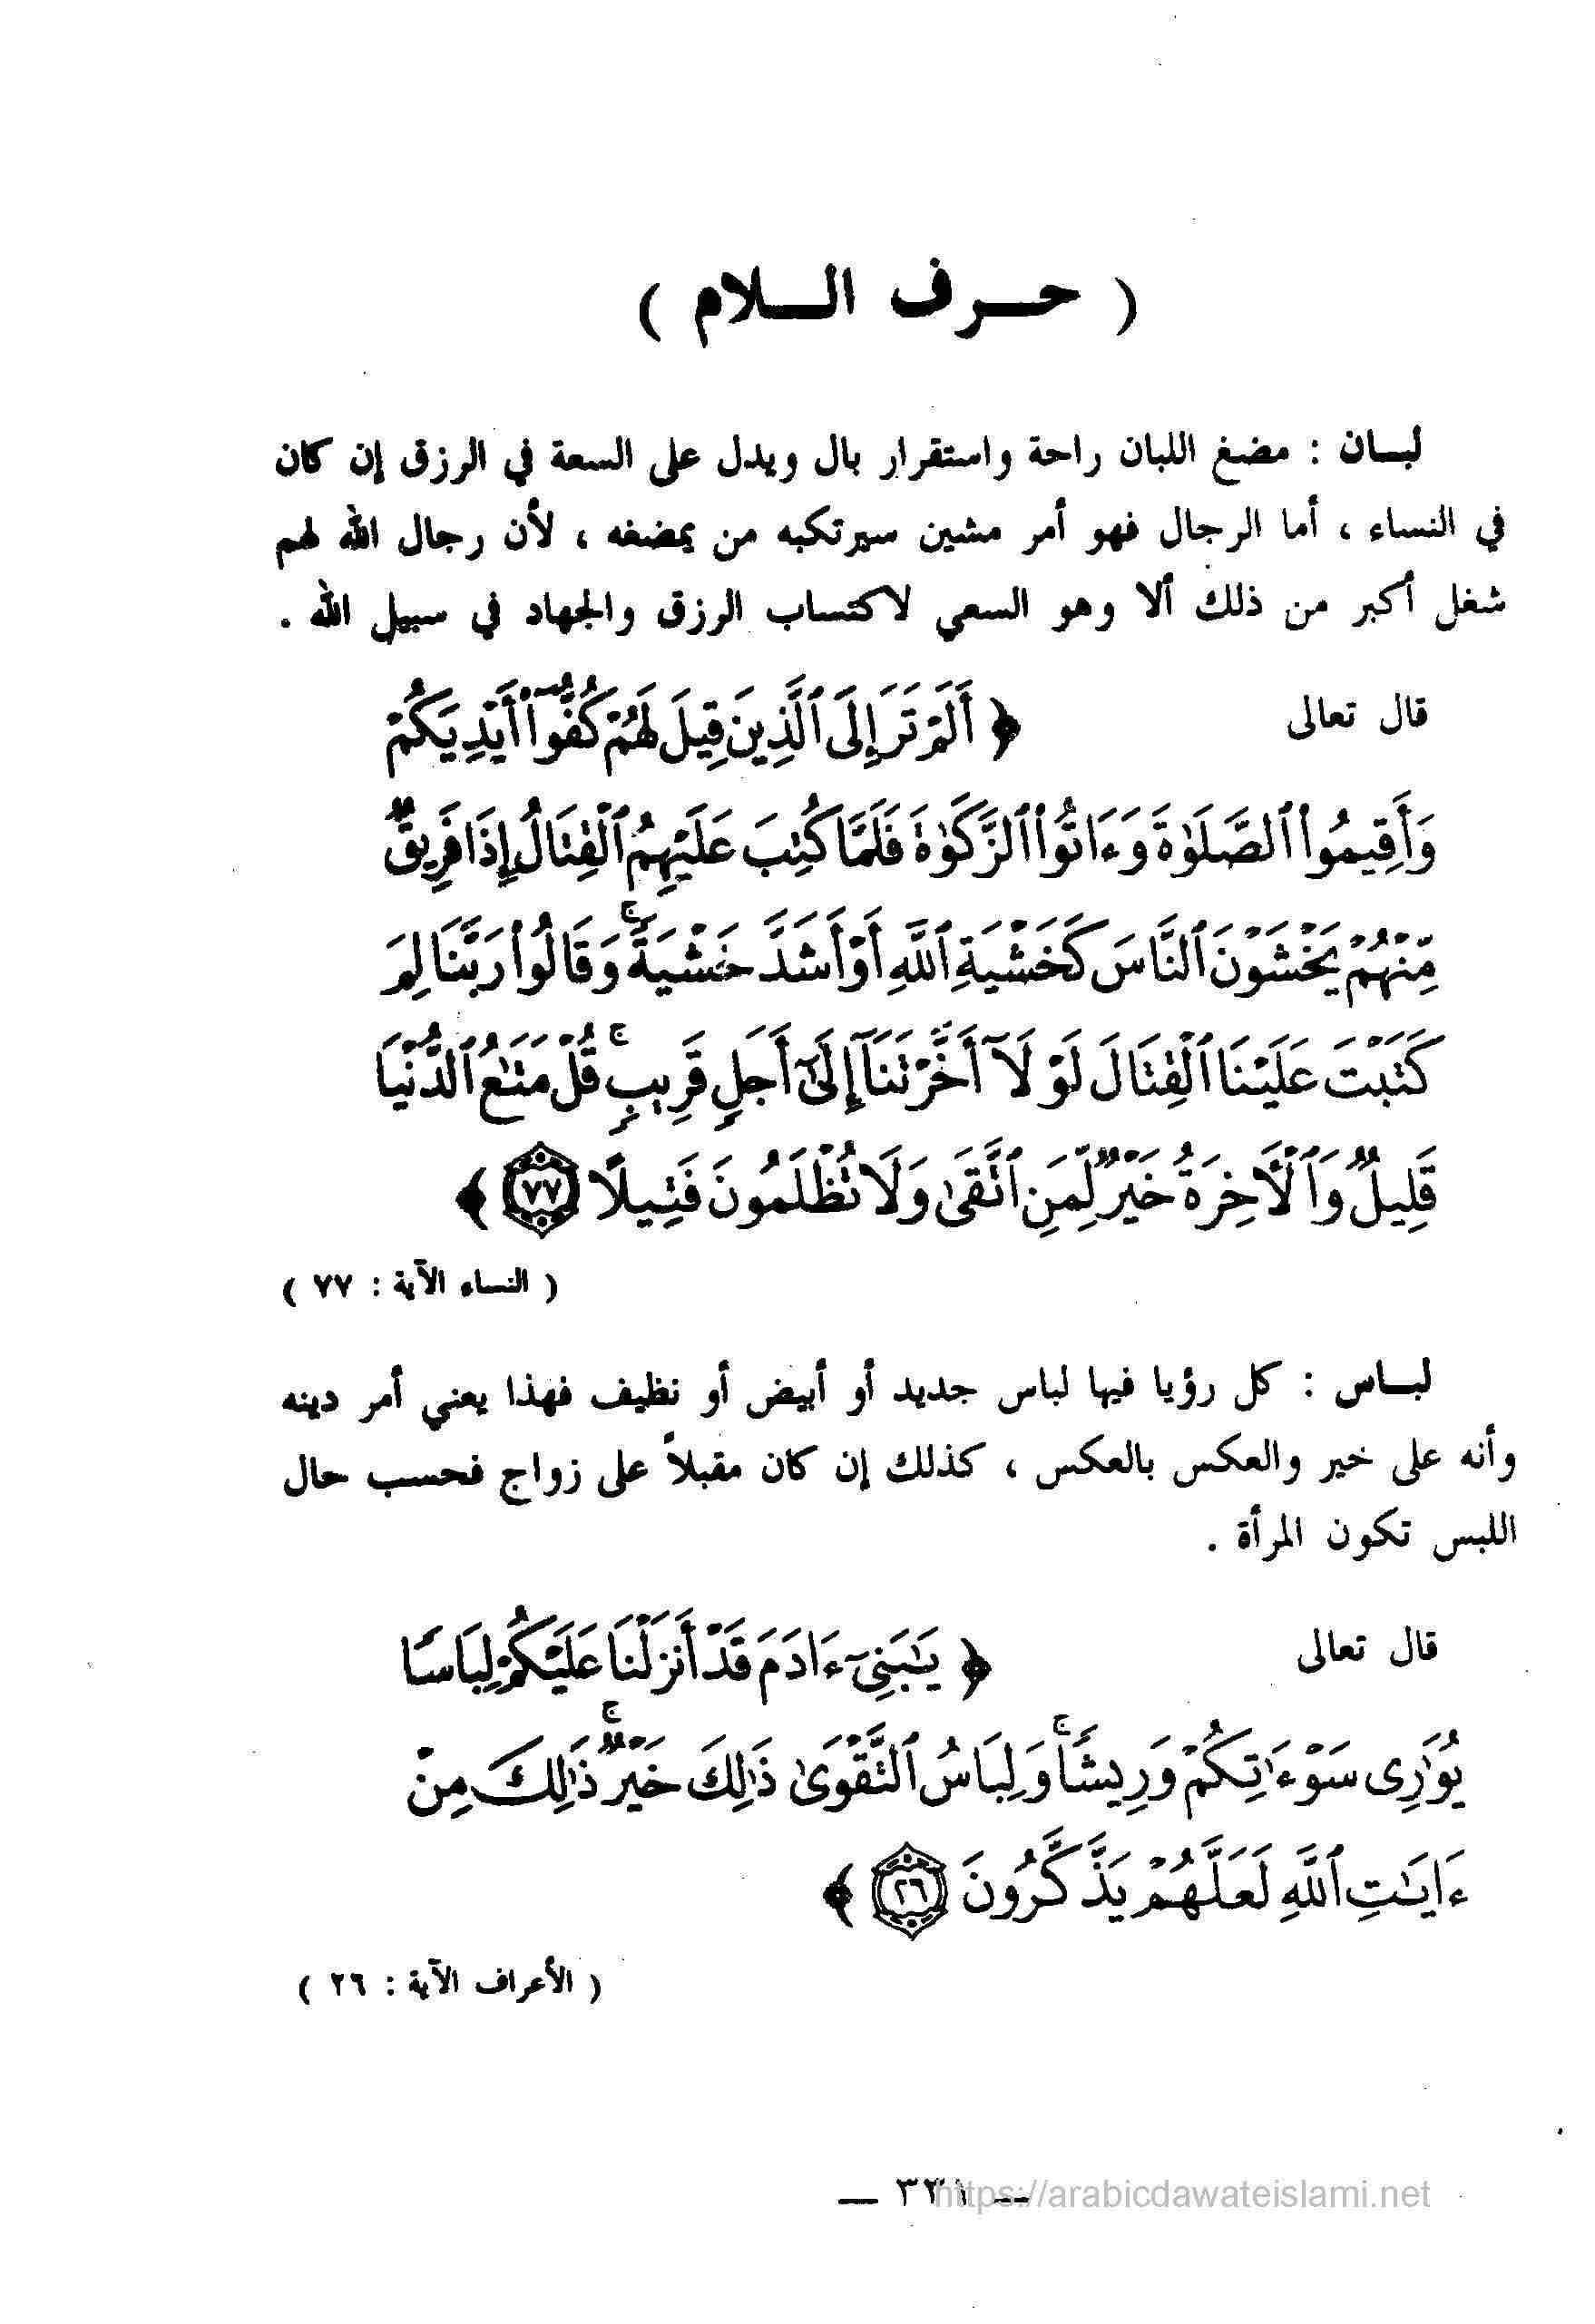 ( حـــرف الـــلام )
لبـان : مضغ اللبان راحة واستقرار بال ويدل على السعة في الرزق إن كان
في النساء ، أما الرجال فهو أمر مشين سيرتكبه من يمضغه ، لأن رجال الله لهم
شغل أكبر من ذلك ألا وهو السعي لاكتساب الرزق والجهاد في سبيل الله .
قال تعالى ﴿ أَلَمۡ تَرَ إِلَى ٱلَّذِينَ قِيلَ لَهُمۡ كُفُّوٓاْ أَيۡدِيَكُمۡ
وَأَقِيمُواْ ٱلصَّلَوٰةَ وَءَاتُواْ ٱلزَّكَوٰةَ فَلَمَّا كُتِبَ عَلَيۡهِمُ ٱلۡقِتَالُ إِذَا فَرِيقٞ
مِّنۡهُمۡ يَخۡشَوۡنَ ٱلنَّاسَ كَخَشۡيَةِ ٱللَّهِ أَوۡ أَشَدَّ خَشۡيَةٗۚ وَقَالُواْ رَبَّنَا لِمَ
كَتَبۡتَ عَلَيۡنَا ٱلۡقِتَالَ لَوۡلَآ أَخَّرۡتَنَآ إِلَىٰٓ أَجَلٖ قَرِيبٖۚ قُلۡ مَتَٰعُ ٱلدُّنۡيَا
قَلِيلٞ وَٱلۡأَخِرَةُ خَيۡرٞ لِّمَنِ ٱتَّقَىٰ وَلَا تُظۡلَمُونَ فَتِيلًا ٧٧ ﴾
( النساء الآية : ٧٧ )
لبـاس : كل رؤيا فيها لباس جديد أو أبيض أو نظيف فهذا يعني أمر دينه
وأنه على خير والعكس بالعكس ، كذلك إن كان مقبلاً على زواج فحسب حال
اللبس تكون المرأة .
قال تعالى ﴿ يَٰبَنِيٓ ءَادَمَ قَدۡ أَنزَلۡنَا عَلَيۡكُمۡ لِبَاسٗا
يُوَٰرِي سَوۡءَٰتِكُمۡ وَرِيشٗاۖ وَلِبَاسُ ٱلتَّقۡوَىٰ ذَٰلِكَ خَيۡرٞۚ ذَٰلِكَ مِنۡ
ءَايَٰتِ ٱللَّهِ لَعَلَّهُمۡ يَذَّكَّرُونَ ٢٦ ﴾
( الأعراف الآية : ٢٦ )
— ٣٣١ —
https://arabicdawateislami.net